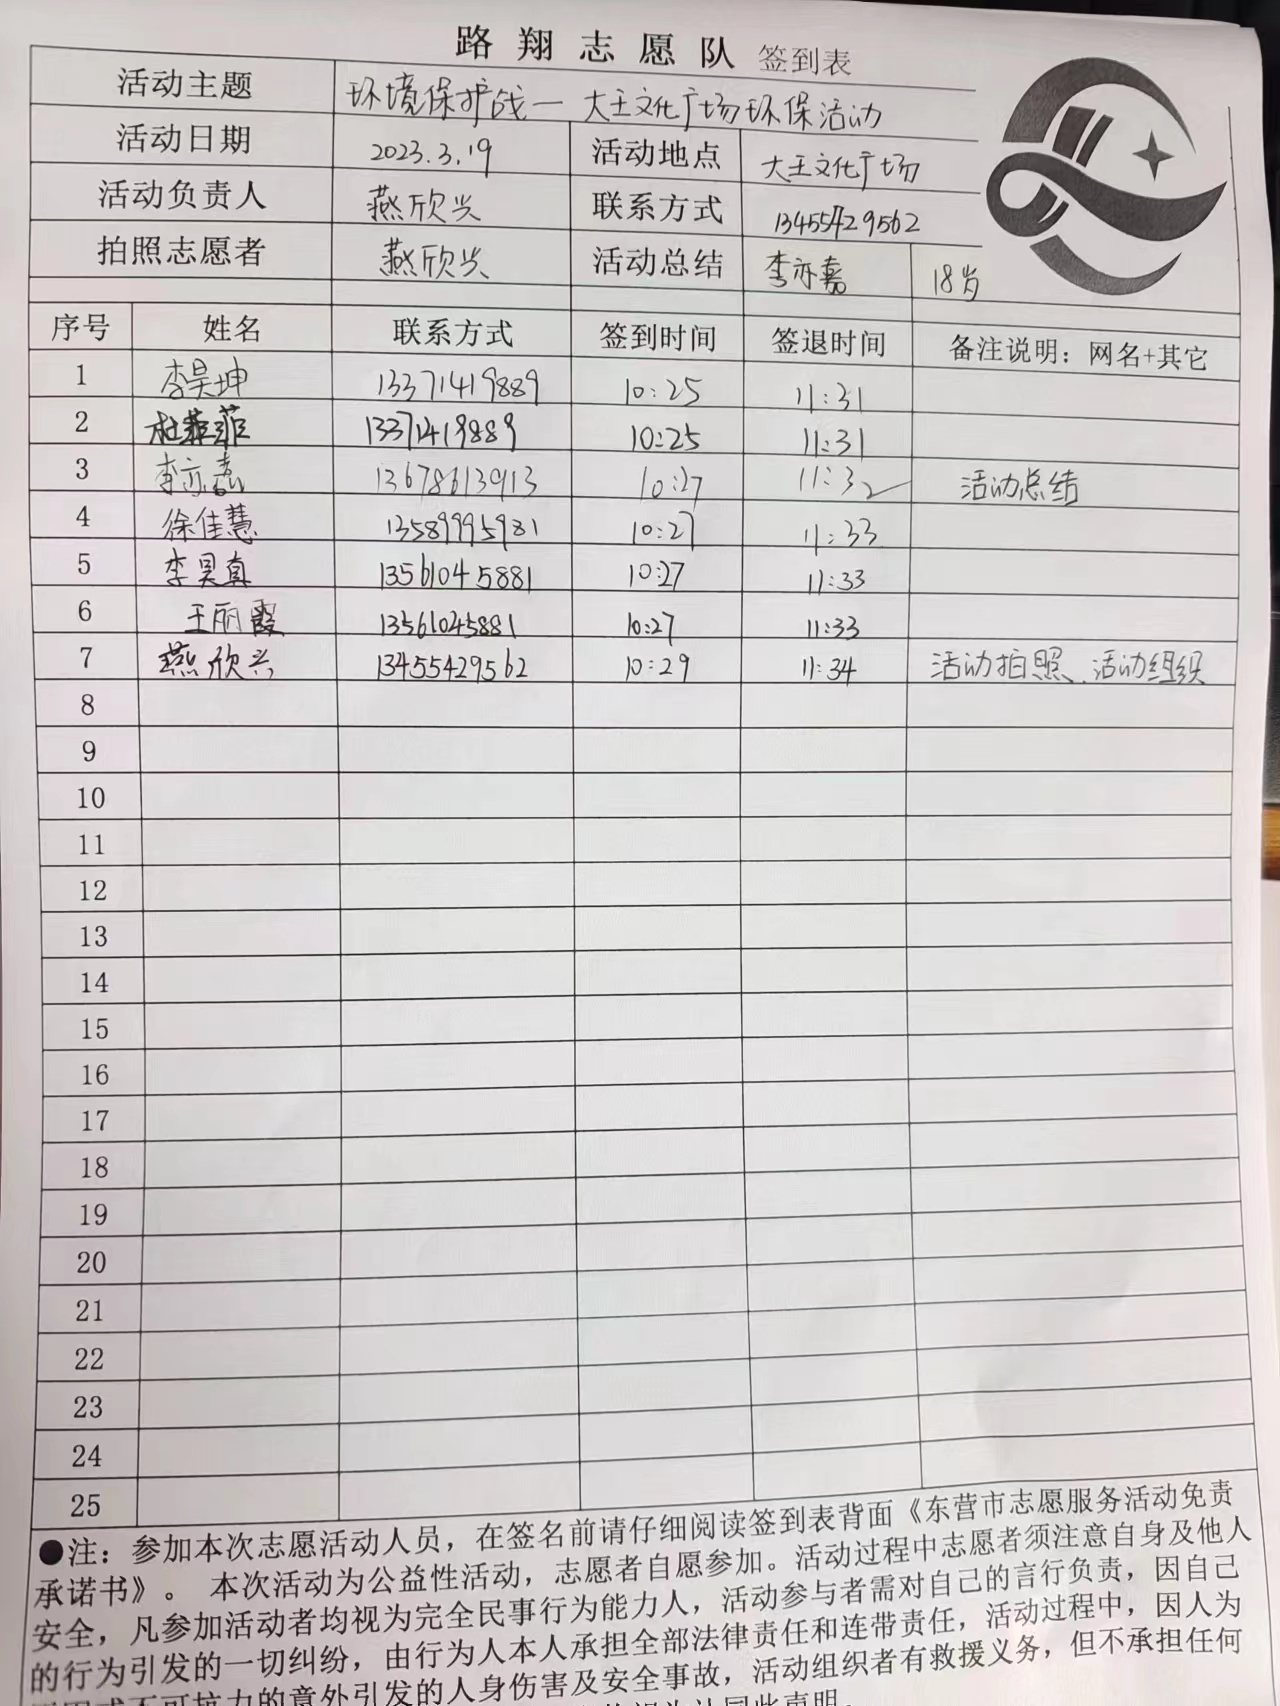 路翔志愿队 签到表
活动主题 环境保护战一 大王文化广场环保活动
活动日期 2023.3.19 活动地点 大王文化广场
活动负责人 燕欣兴 联系方式 13455429562
拍照志愿者 燕欣兴 活动总结 李亦嘉 18岁
序号 姓名 联系方式 签到时间 签退时间 备注说明：网名+其它
1 李昊坤 13371419889 10:25 11:31
2 杜菲菲 13371419889 10:25 11:31
3 李亦嘉 13678613913 10:27 11:32 活动总结
4 徐佳慧 13589995981 10:27 11:33
5 李昊真 13561045881 10:27 11:33
6 王丽霞 13561045881 10:27 11:33
7 燕欣兴 13455429562 10:29 11:34 活动拍照、活动组织
8
9
10
11
12
13
14
15
16
17
18
19
20
21
22
23
24
25
●注：参加本次志愿活动人员，在签名前请仔细阅读签到表背面《东营市志愿服务活动免责
承诺书》。 本次活动为公益性活动，志愿者自愿参加。活动过程中志愿者须注意自身及他人
安全，凡参加活动者均视为完全民事行为能力人，活动参与者需对自己的言行负责，因自己
的行为引发的一切纠纷，由行为人本人承担全部法律责任和连带责任，活动过程中，因人为
不可抗力的意外引发的人身伤害及安全事故，活动组织者有救援义务，但不承担任何